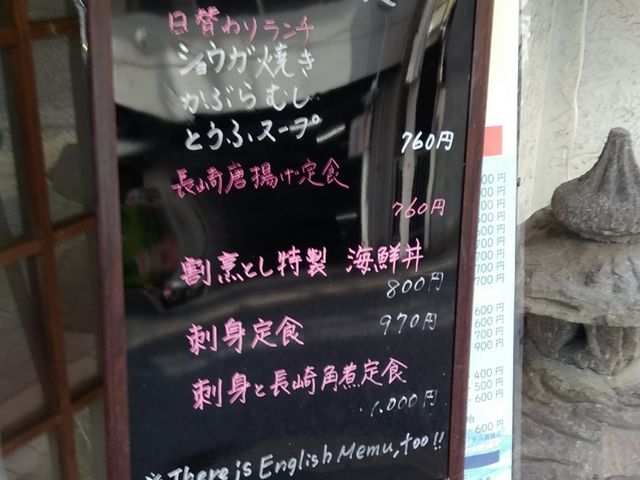 日替わりランチ
ショウガ焼き
かぶらむし
とうふスープ 760円
長崎唐揚げ定食
760円
割烹とし特製 海鮮丼
800円
刺身定食 970円
刺身と長崎角煮定食
1,000円
※There is English Memu, too!!
700円
700円
600円
600円
700円
900円
400円
500円
600円
600円